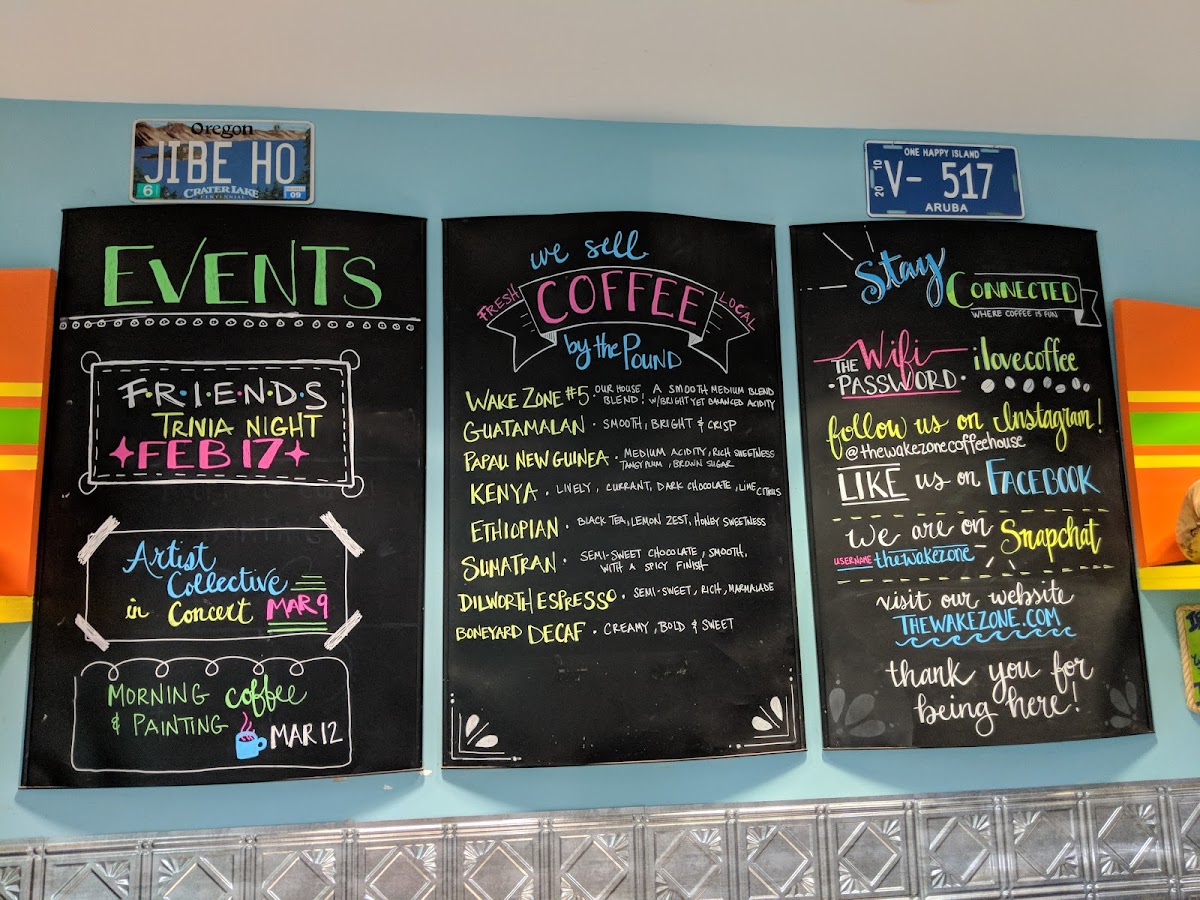 Oregon
JIBE HO
6
CRATER LAKE
CENTENNIAL
09
EVENTS
F·R·I·E·N·D·S
TRIVIA NIGHT
FEB 17
Artist
Collective
in Concert MAR 9
MORNING coffee
& PAINTING
MAR 12
we sell
FRESH COFFEE LOCAL
by the POUND
WAKE ZONE #5 · OUR HOUSE BLEND! A SMOOTH MEDIUM BLEND
W/BRIGHT YET BALANCED ACIDITY
GUATAMALAN · SMOOTH, BRIGHT & CRISP
PAPAU NEW GUINEA · MEDIUM ACIDITY, RICH SWEETNESS
TANGY PLUM, BROWN SUGAR
KENYA · LIVELY, CURRANT, DARK CHOCOLATE, LIME CITRUS
ETHIOPIAN · BLACK TEA, LEMON ZEST, HONEY SWEETNESS
SUMATRAN · SEMI-SWEET CHOCOLATE, SMOOTH,
WITH A SPICY FINISH
DILWORTH ESPRESSO · SEMI-SWEET, RICH, MARMALADE
BONEYARD DECAF · CREAMY, BOLD & SWEET
ONE HAPPY ISLAND
2010
V- 517
ARUBA
Stay
CONNECTED
WHERE COFFEE IS FUN
THE Wifi
·PASSWORD·
ilovecoffee
follow us on Instagram!
@thewakezonecoffeehouse
LIKE us on FACEBOOK
we are on Snapchat
USERNAME thewakezone
visit our website
THEWAKEZONE.COM
thank you for
being here!